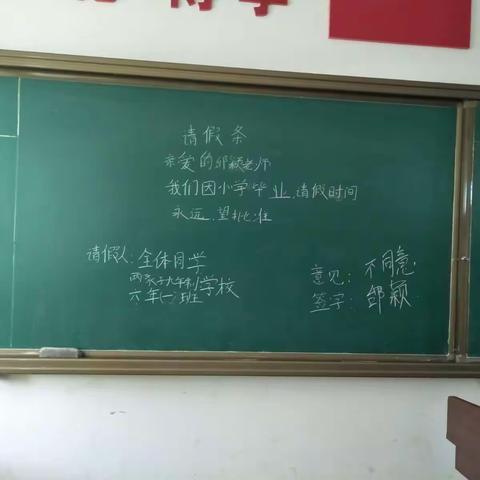 请假条
亲爱的邰颖老师
我们因小学毕业，请假时间
永远，望批准
请假人：全体同学
九年制学校
六年(一)班
意见：不同意
签字：邰颖